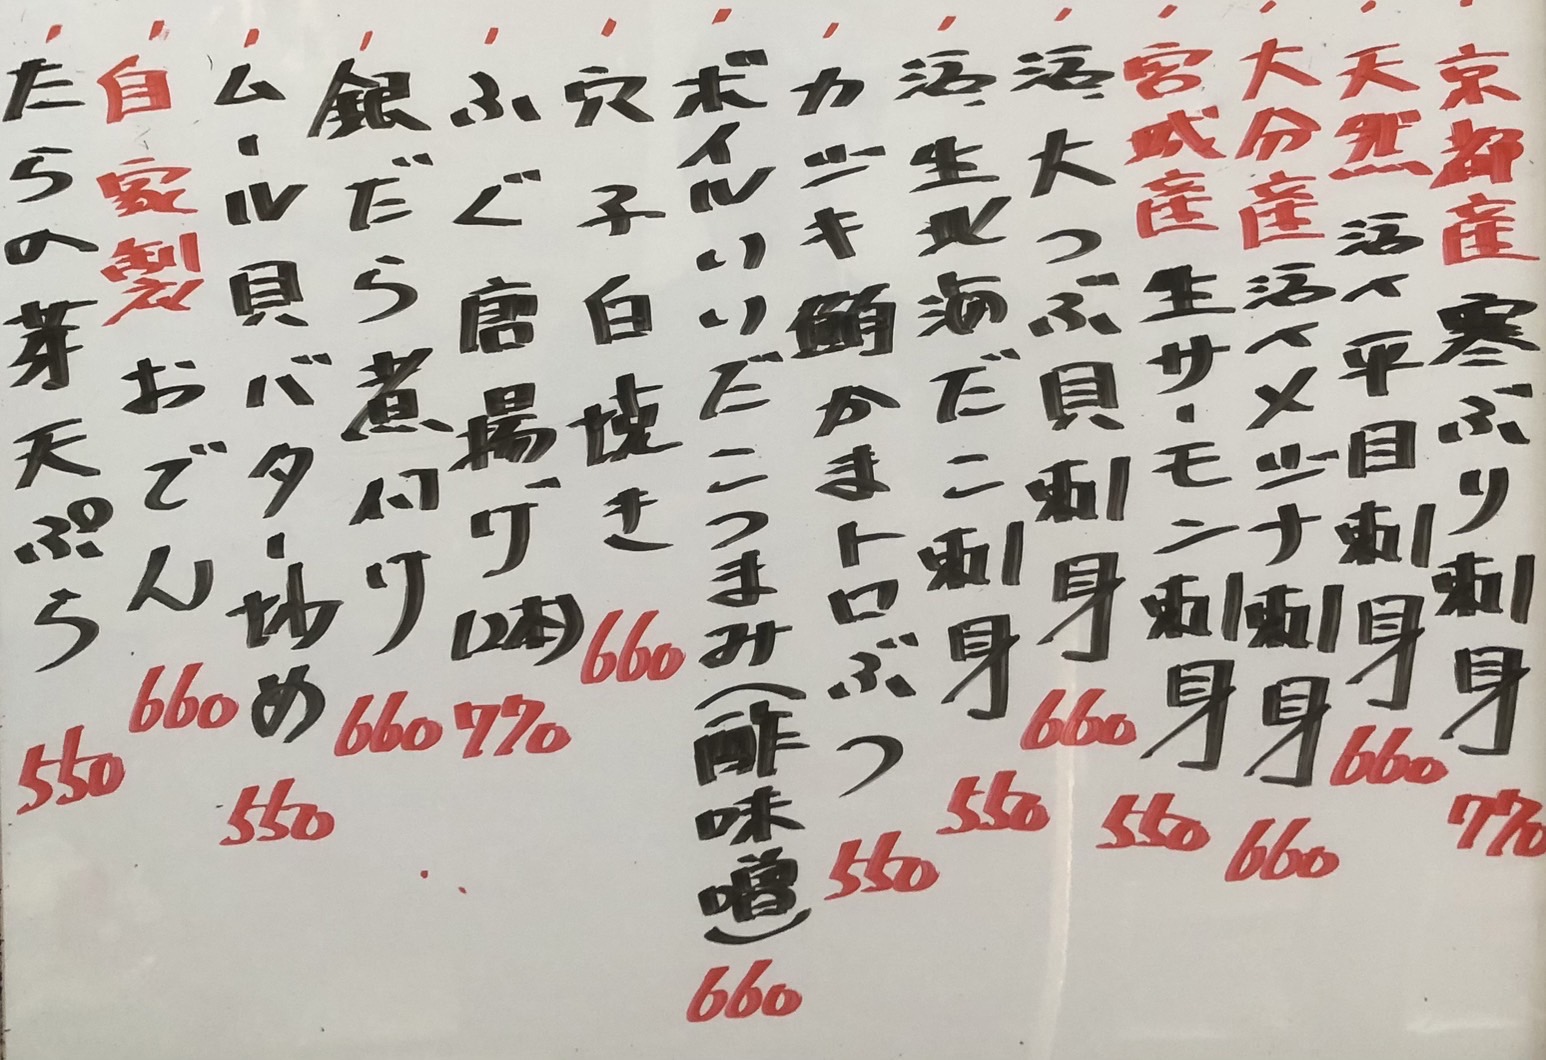 京都産 寒ぶり刺身 770
天然 活〆平目刺身 660
大分産 活〆メジナ刺身 660
宮城産 生サーモン刺身 550
活 大つぶ貝刺身 660
活 生北海だこ刺身 550
カジキ鮪かまトロぶつ 550
ボイルいいだこつまみ(酢味噌) 660
穴子白焼き 660
ふぐ唐揚げ(2本) 770
銀だら煮付け 660
ムール貝バター炒め 550
自家製 おでん 660
たらの芽天ぷら 550